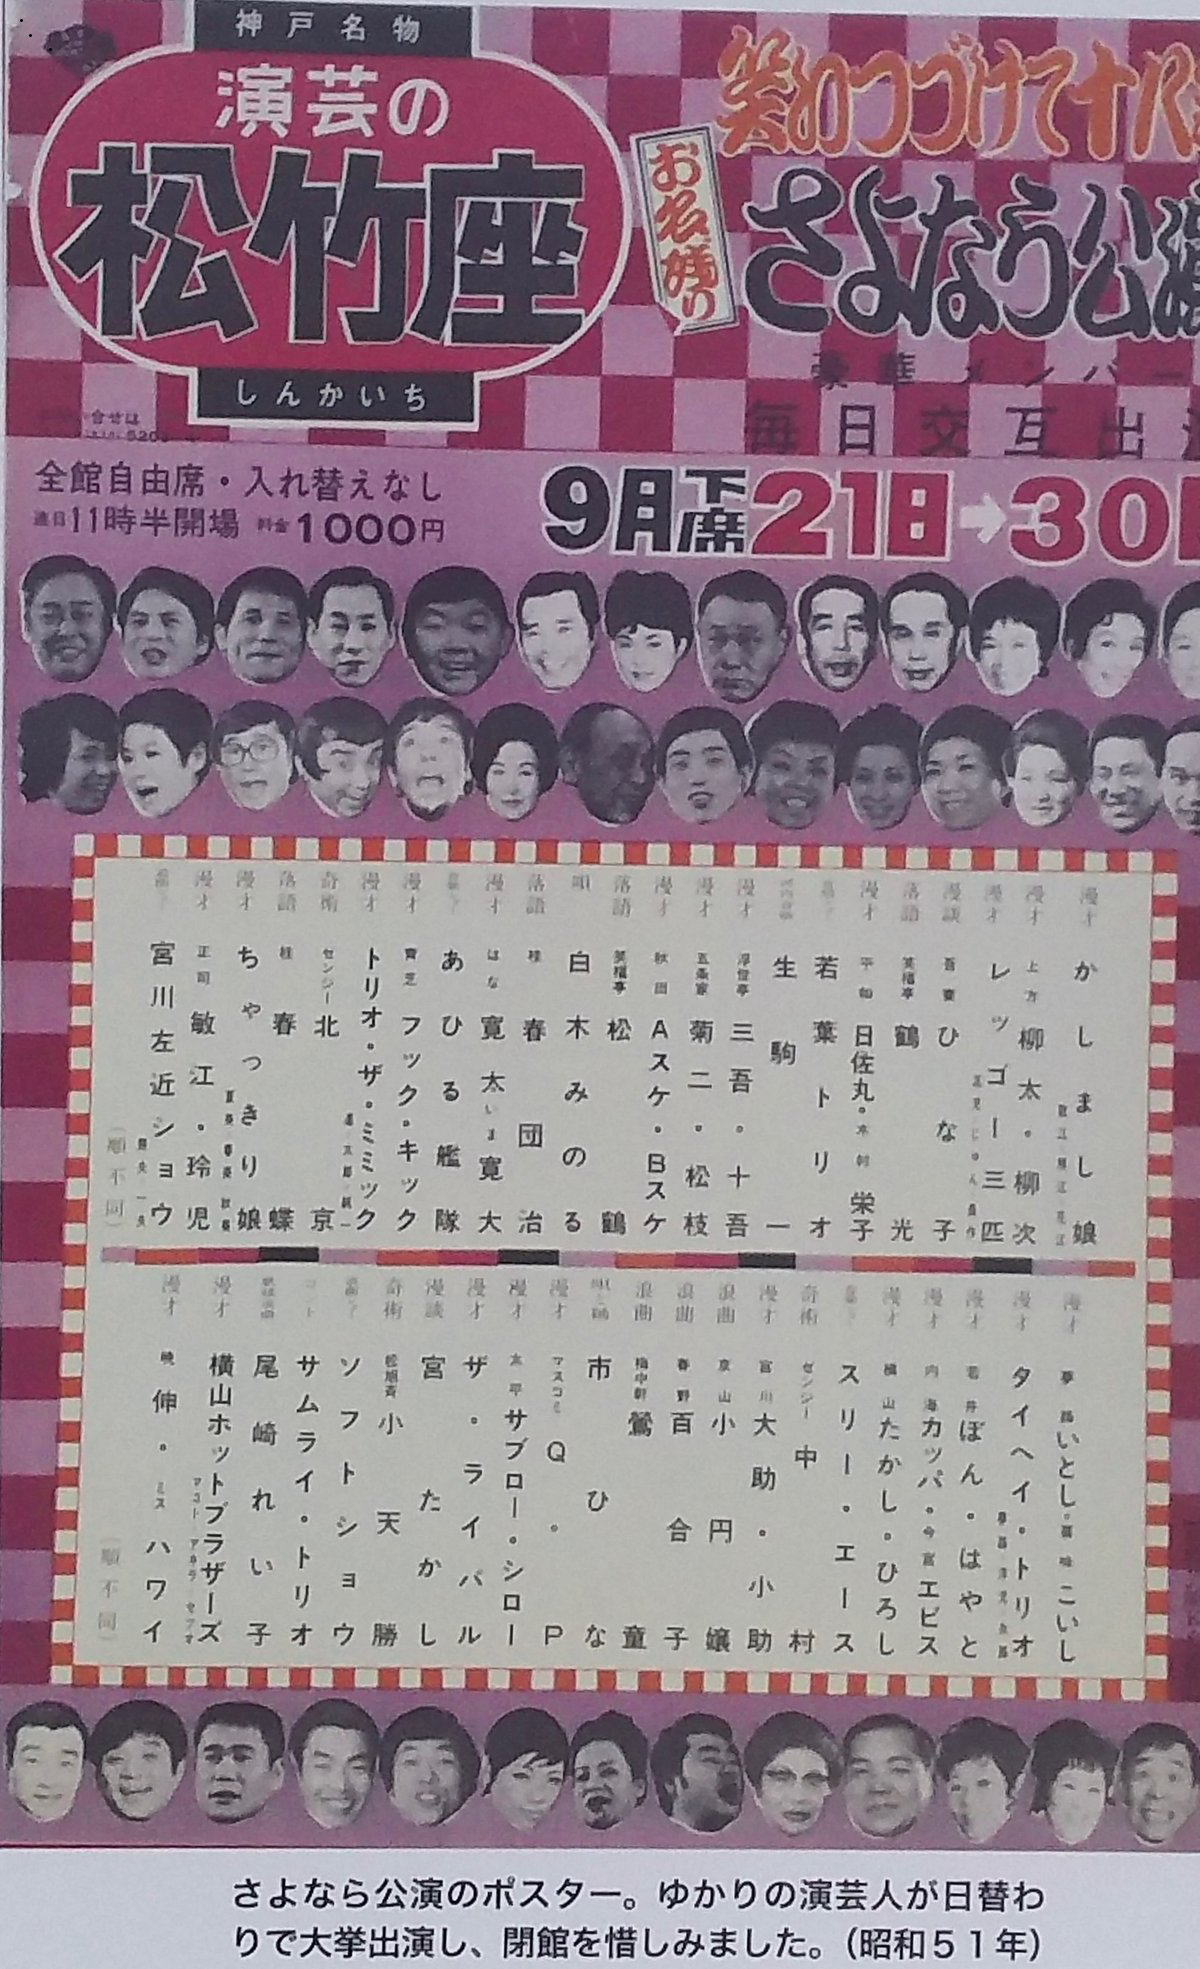 神戸名物
演芸の
松竹座
しんかいち
笑いつづけて十八
お名残り
さよなら公演
豪華メンバー
毎日交互出演
合せは
全館自由席・入れ替えなし
連日11時半開場 料金1000円
9月下席21日→30日
漫才 かしまし娘
漫才 上方柳太・柳次
漫才 レツゴー三匹
漫談 吾妻ひな子
落語 笑福亭鶴光
漫才 平和日佐丸・木村栄子
若葉トリオ
生駒一
漫才 浮世亭三吾・十吾
漫才 五条家菊二・松枝
漫才 秋田Aスケ・Bスケ
落語 笑福亭松鶴
唄 白木みのる
落語 桂春団治
漫才 はな寛太・いま寛大
あひる艦隊
漫才 フック・キック
漫才 トリオ・ザ・ミミック
奇術 センジー北京
落語 桂春蝶
漫才 ちゃっきり娘
漫才 正司敏江・玲児
宮川左近ショウ
(順不同)
漫才 夢路いとし・喜味こいし
漫才 タイヘイ・トリオ
漫才 若井ぼん・はやと
漫才 内海カッパ・今宮エビス
漫才 横山たかし・ひろし
スリー・エース
奇術 ゼンジー中村
漫才 宮川大助・小助
浪曲 京山小円嬢
浪曲 春野百合子
浪曲 梅中軒鶯童
市ひな
漫才 マスコミQ・P
漫才 太平サブロー・シロー
漫才 ザ・ライバル
漫談 宮たかし
奇術 松旭斉小天勝
ソフトショウ
サムライ・トリオ
尾崎れい子
漫才 横山ホットブラザーズ マコト アキラ セツオ
漫才 暁伸・ミスハワイ
(順不同)
さよなら公演のポスター。ゆかりの演芸人が日替わ
りで大挙出演し、閉館を惜しみました。(昭和51年)